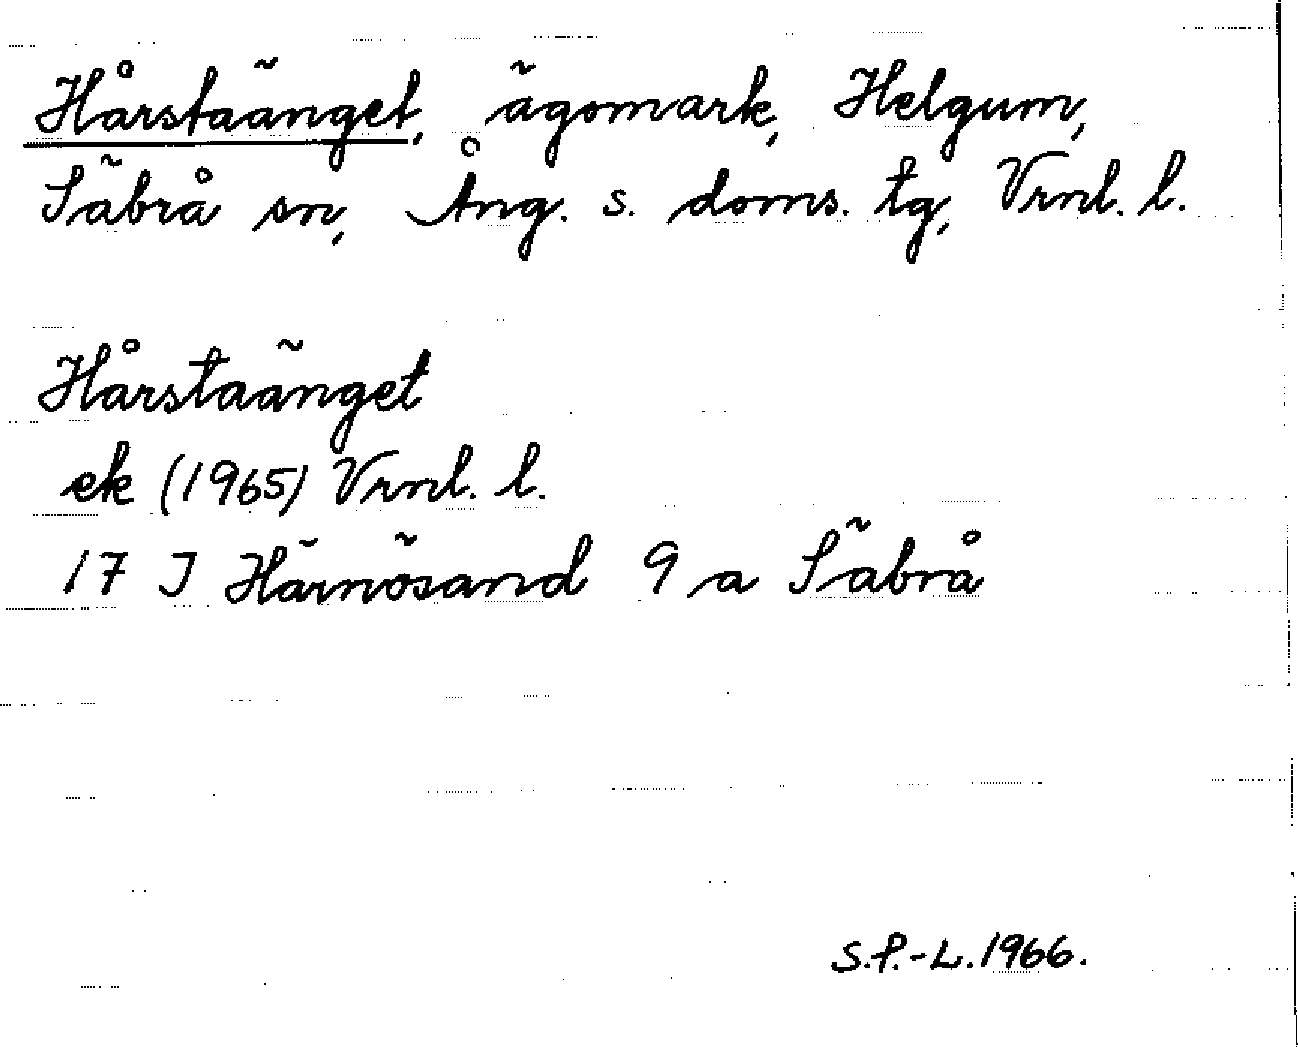 Hårstaänget, ägomark, Helgum,
Säbrå sn, Ång. s. doms. tg, Vrnl. l.
Hårstaänget
ek (1965) Vrnl. l.
17 J Härnösand 9 a Säbrå
S.P.-L. 1966.